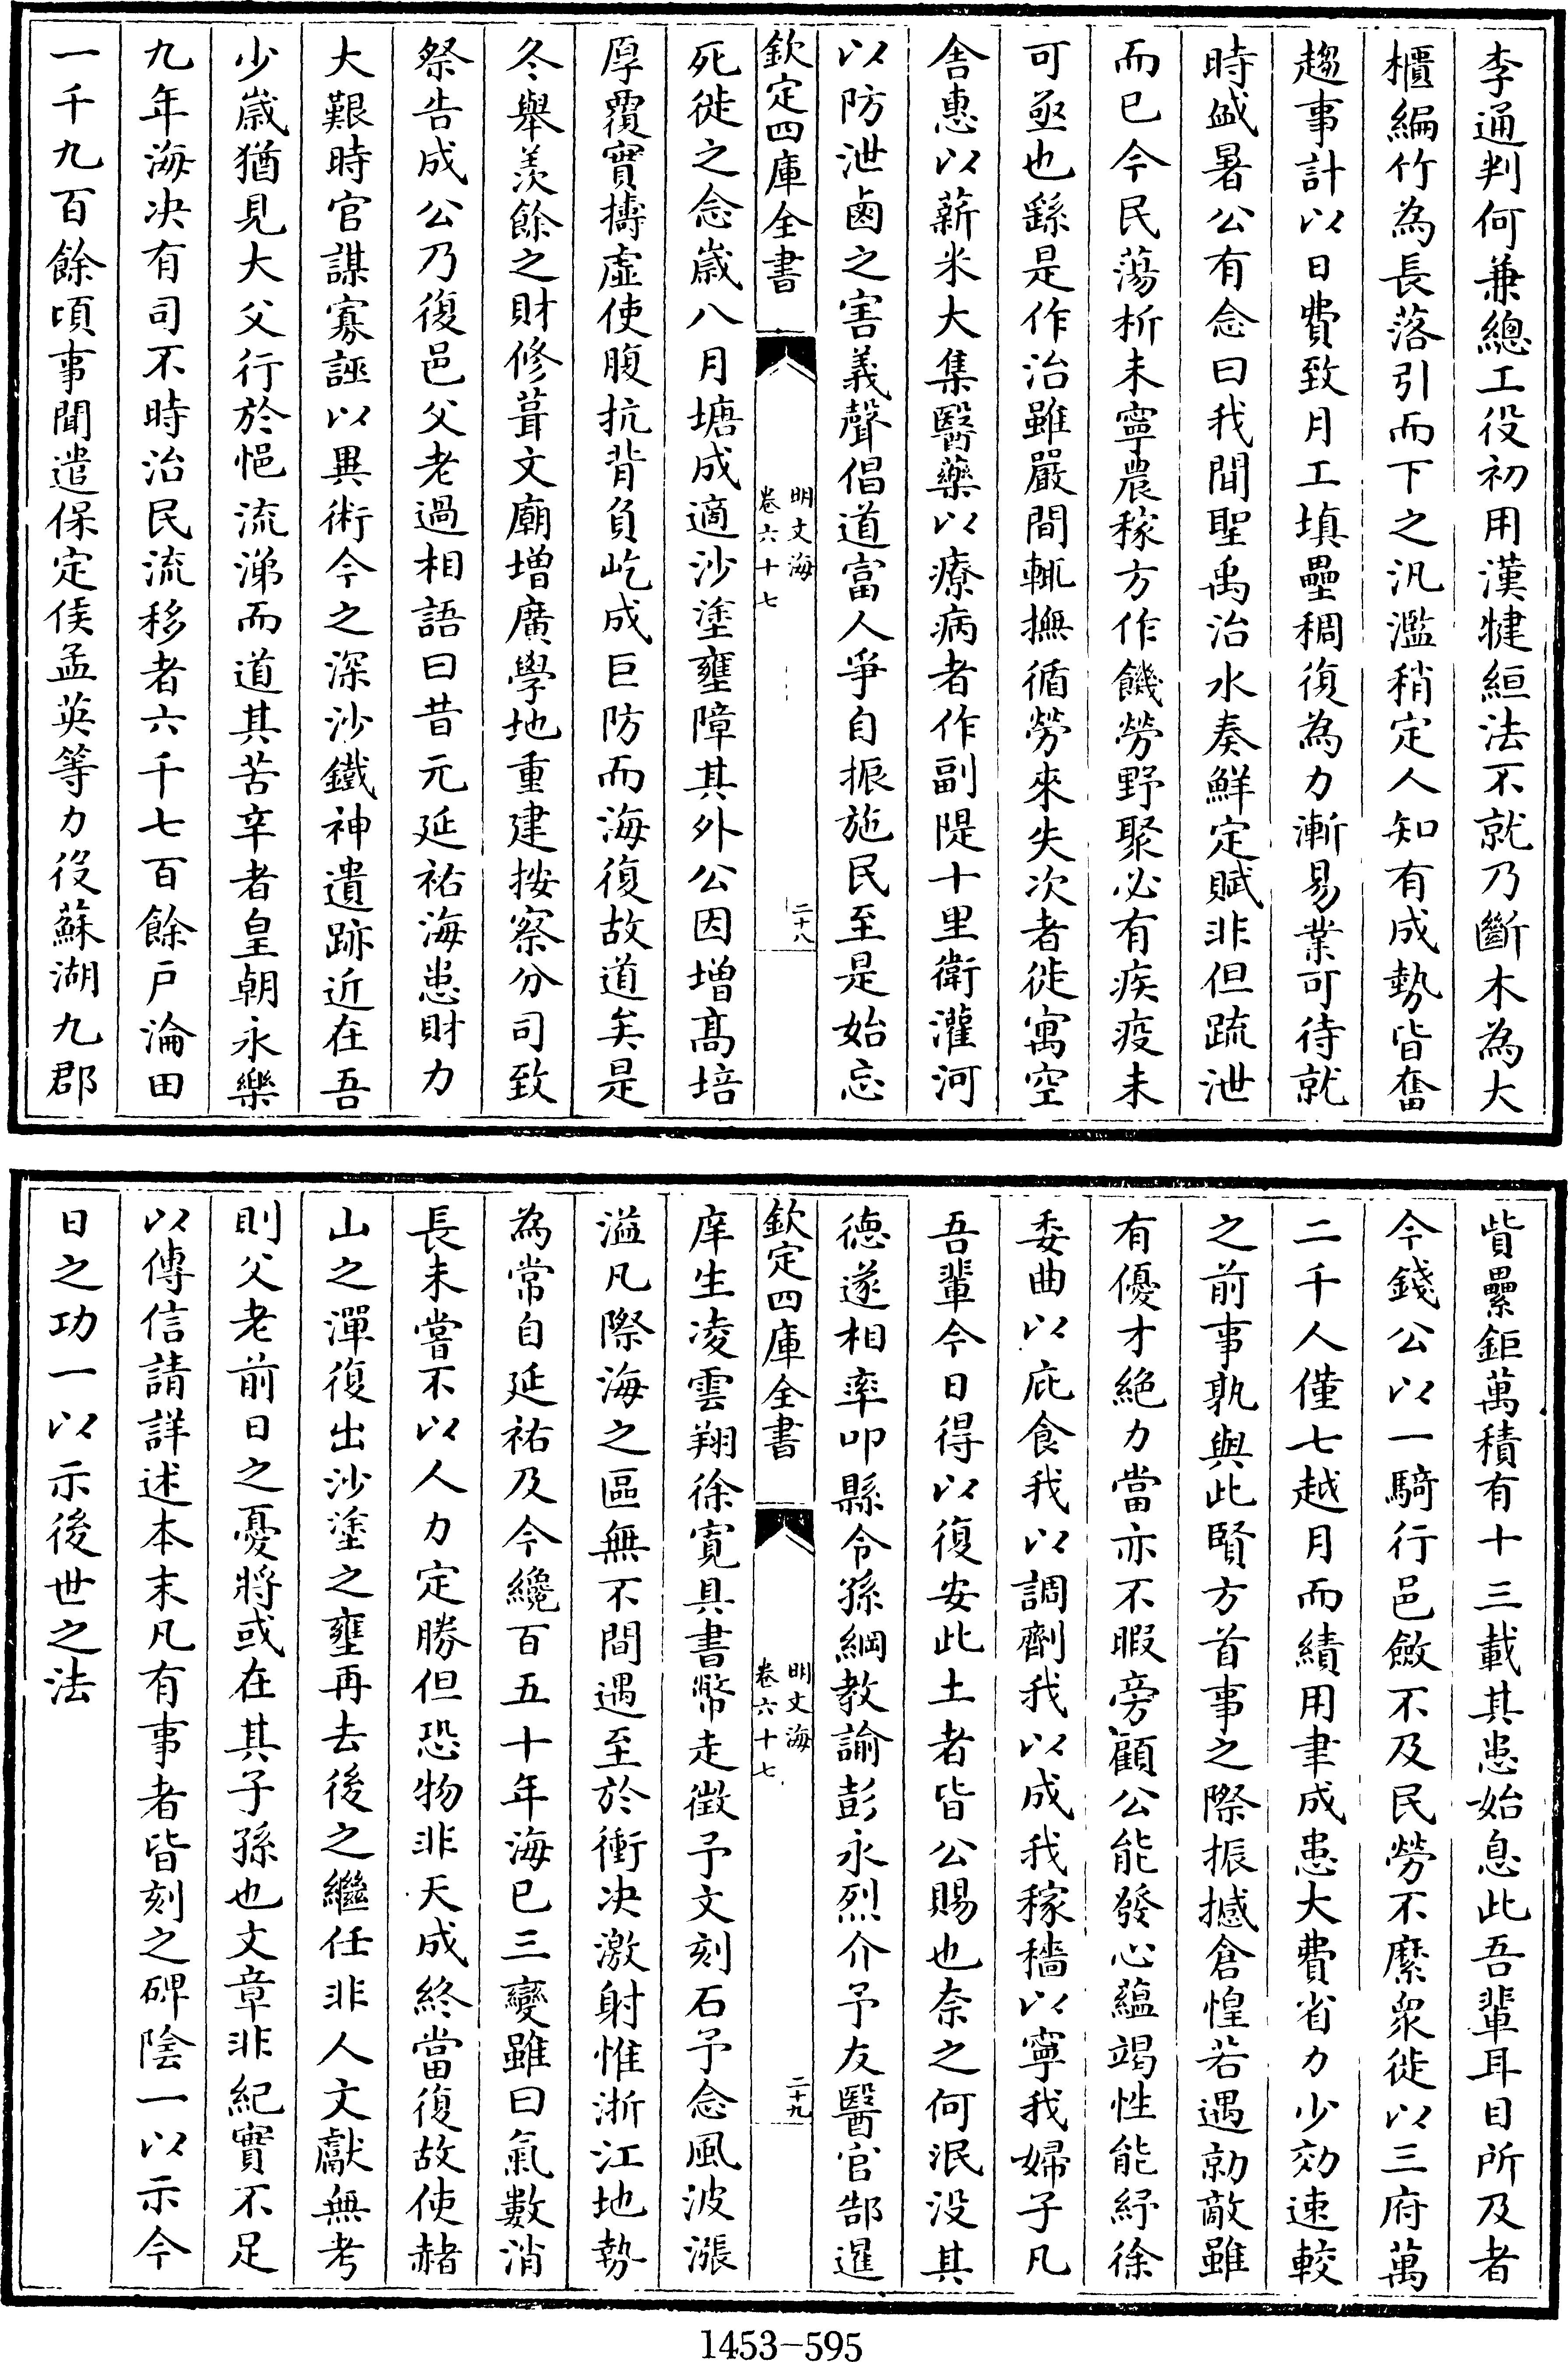 李通判何兼總工役初用漢犍絙法不就乃斷木為大
櫃編竹為長落引而下之汎濫稍定人知有成勢皆奮
趨事計以日費致月工填壘稠復為力漸易業可待就
時盛暑公有念曰我聞聖禹治水奏鮮定賦非但疏泄
而已今民蕩析未寧農稼方作饑勞野聚必有疾疫未
可亟也繇是作治雖嚴間輒撫循勞來失次者徙寓空
舍惠以薪米大集醫藥以療病者作副隄十里衛灌河
以防泄鹵之害義聲倡道富人爭自振施民至是始忘
欽定四庫全書
明文海
卷六十七
二十八
死徙之念歲八月塘成適沙塗壅障其外公因增髙培
厚覆實擣虛使腹抗背負屹成巨防而海復故道矣是
冬舉羨餘之財修葺文廟增廣學地重建按察分司致
祭告成公乃復邑父老過相語曰昔元延祐海患財力
大艱時官謀寡誣以異術今之深沙鐵神遺跡近在吾
少歲猶見大父行於悒流涕而道其苦辛者皇朝永樂
九年海决有司不時治民流移者六千七百餘戶淪田
一千九百餘頃事聞遣保定侯孟英等力役蘇湖九郡
貲纍鉅萬積有十三載其患始息此吾輩耳目所及者
今錢公以一騎行邑斂不及民勞不縻衆徙以三府萬
二千人僅七越月而績用聿成患大費省力少効速較
之前事孰與此賢方首事之際振撼倉惶若遇勍敵雖
有優才絶力當亦不暇旁顧公能發心蘊竭性能紓徐
委曲以庇食我以調劑我以成我稼穡以寧我婦子凡
吾輩今日得以復安此土者皆公賜也奈之何泯没其
德遂相率叩縣令孫綱教諭彭永烈介予友醫官郜暹
欽定四庫全書
明文海
卷六十七
二十九
庠生凌雲翔徐寛具書幣走徵予文刻石予念風波漲
溢凡際海之區無不間遇至於衝决激射惟浙江地勢
為常自延祐及今纔百五十年海已三變雖曰氣數消
長未嘗不以人力定勝但恐物非天成終當復故使赭
山之潬復出沙塗之壅再去後之繼任非人文獻無考
則父老前日之憂將或在其子孫也文章非紀實不足
以傳信請詳述本末凡有事者皆刻之碑陰一以示今
日之功一以示後世之法
1453-595